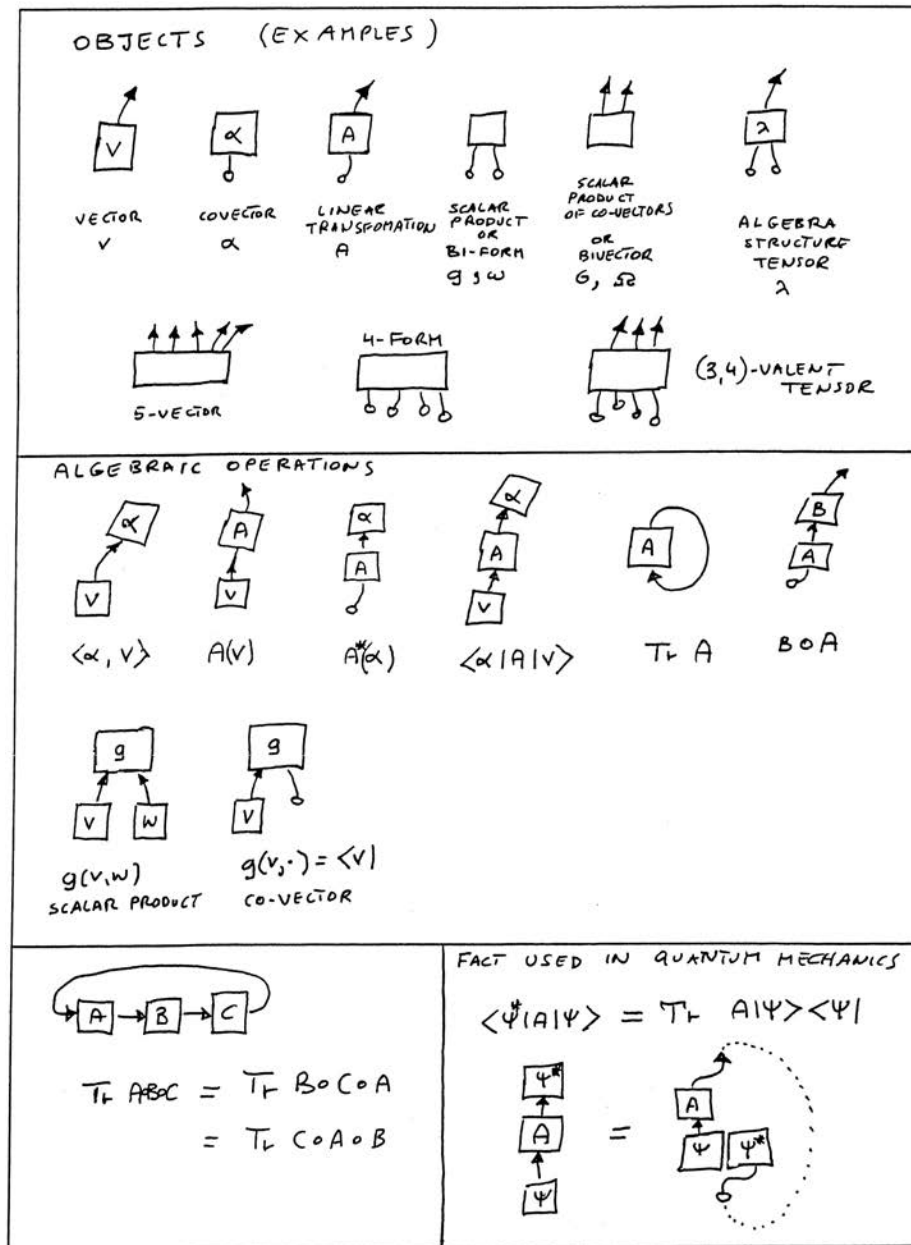 OBJECTS (EXAMPLES)
V α A λ
VECTOR
V
COVECTOR
α
LINEAR
TRANSFOMATION
A
SCALAR
PRODUCT
OR
BI-FORM
g, ω
SCALAR
PRODUCT
OF CO-VECTORS
OR
BIVECTOR
G, Ω
ALGEBRA
STRUCTURE
TENSOR
λ
5-VECTOR
4-FORM
(3,4)-VALENT
TENSOR
ALGEBRAIC OPERATIONS
α
V
A
V
α
A
α
A
V
A
B
A
<α, V>
A(V)
A*(α)
<α|A|V>
Tr A
B∘A
g
V W
g
V
g(V,W)
SCALAR PRODUCT
g(V,·) = <V|
CO-VECTOR
A B C
Tr A∘B∘C = Tr B∘C∘A
= Tr C∘A∘B
FACT USED IN QUANTUM MECHANICS
<Ψ*|A|Ψ> = Tr A|Ψ><Ψ|
Ψ*
A
Ψ
=
A
Ψ Ψ*